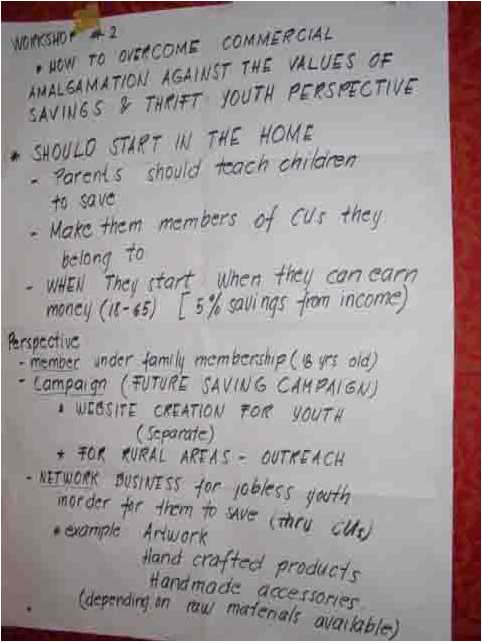 WORKSHOP #2
• HOW TO OVERCOME COMMERCIAL
AMALGAMATION AGAINST THE VALUES OF
SAVINGS & THRIFT YOUTH PERSPECTIVE
* SHOULD START IN THE HOME
- Parents should teach children
to save
- Make them members of CUs they
belong to
- WHEN They start when they can earn
money (18-65) [5% savings from income)
Perspective
- member under family membership (18 yrs old)
- Campaign (FUTURE SAVING CAMPAIGN)
* WEBSITE CREATION FOR YOUTH
(Separate)
* FOR RURAL AREAS - OUTREACH
- NETWORK BUSINESS for jobless youth
inorder for them to save (thru CUs)
* example Artwork
Hand crafted products
Handmade accessories
(depending on raw materials available)